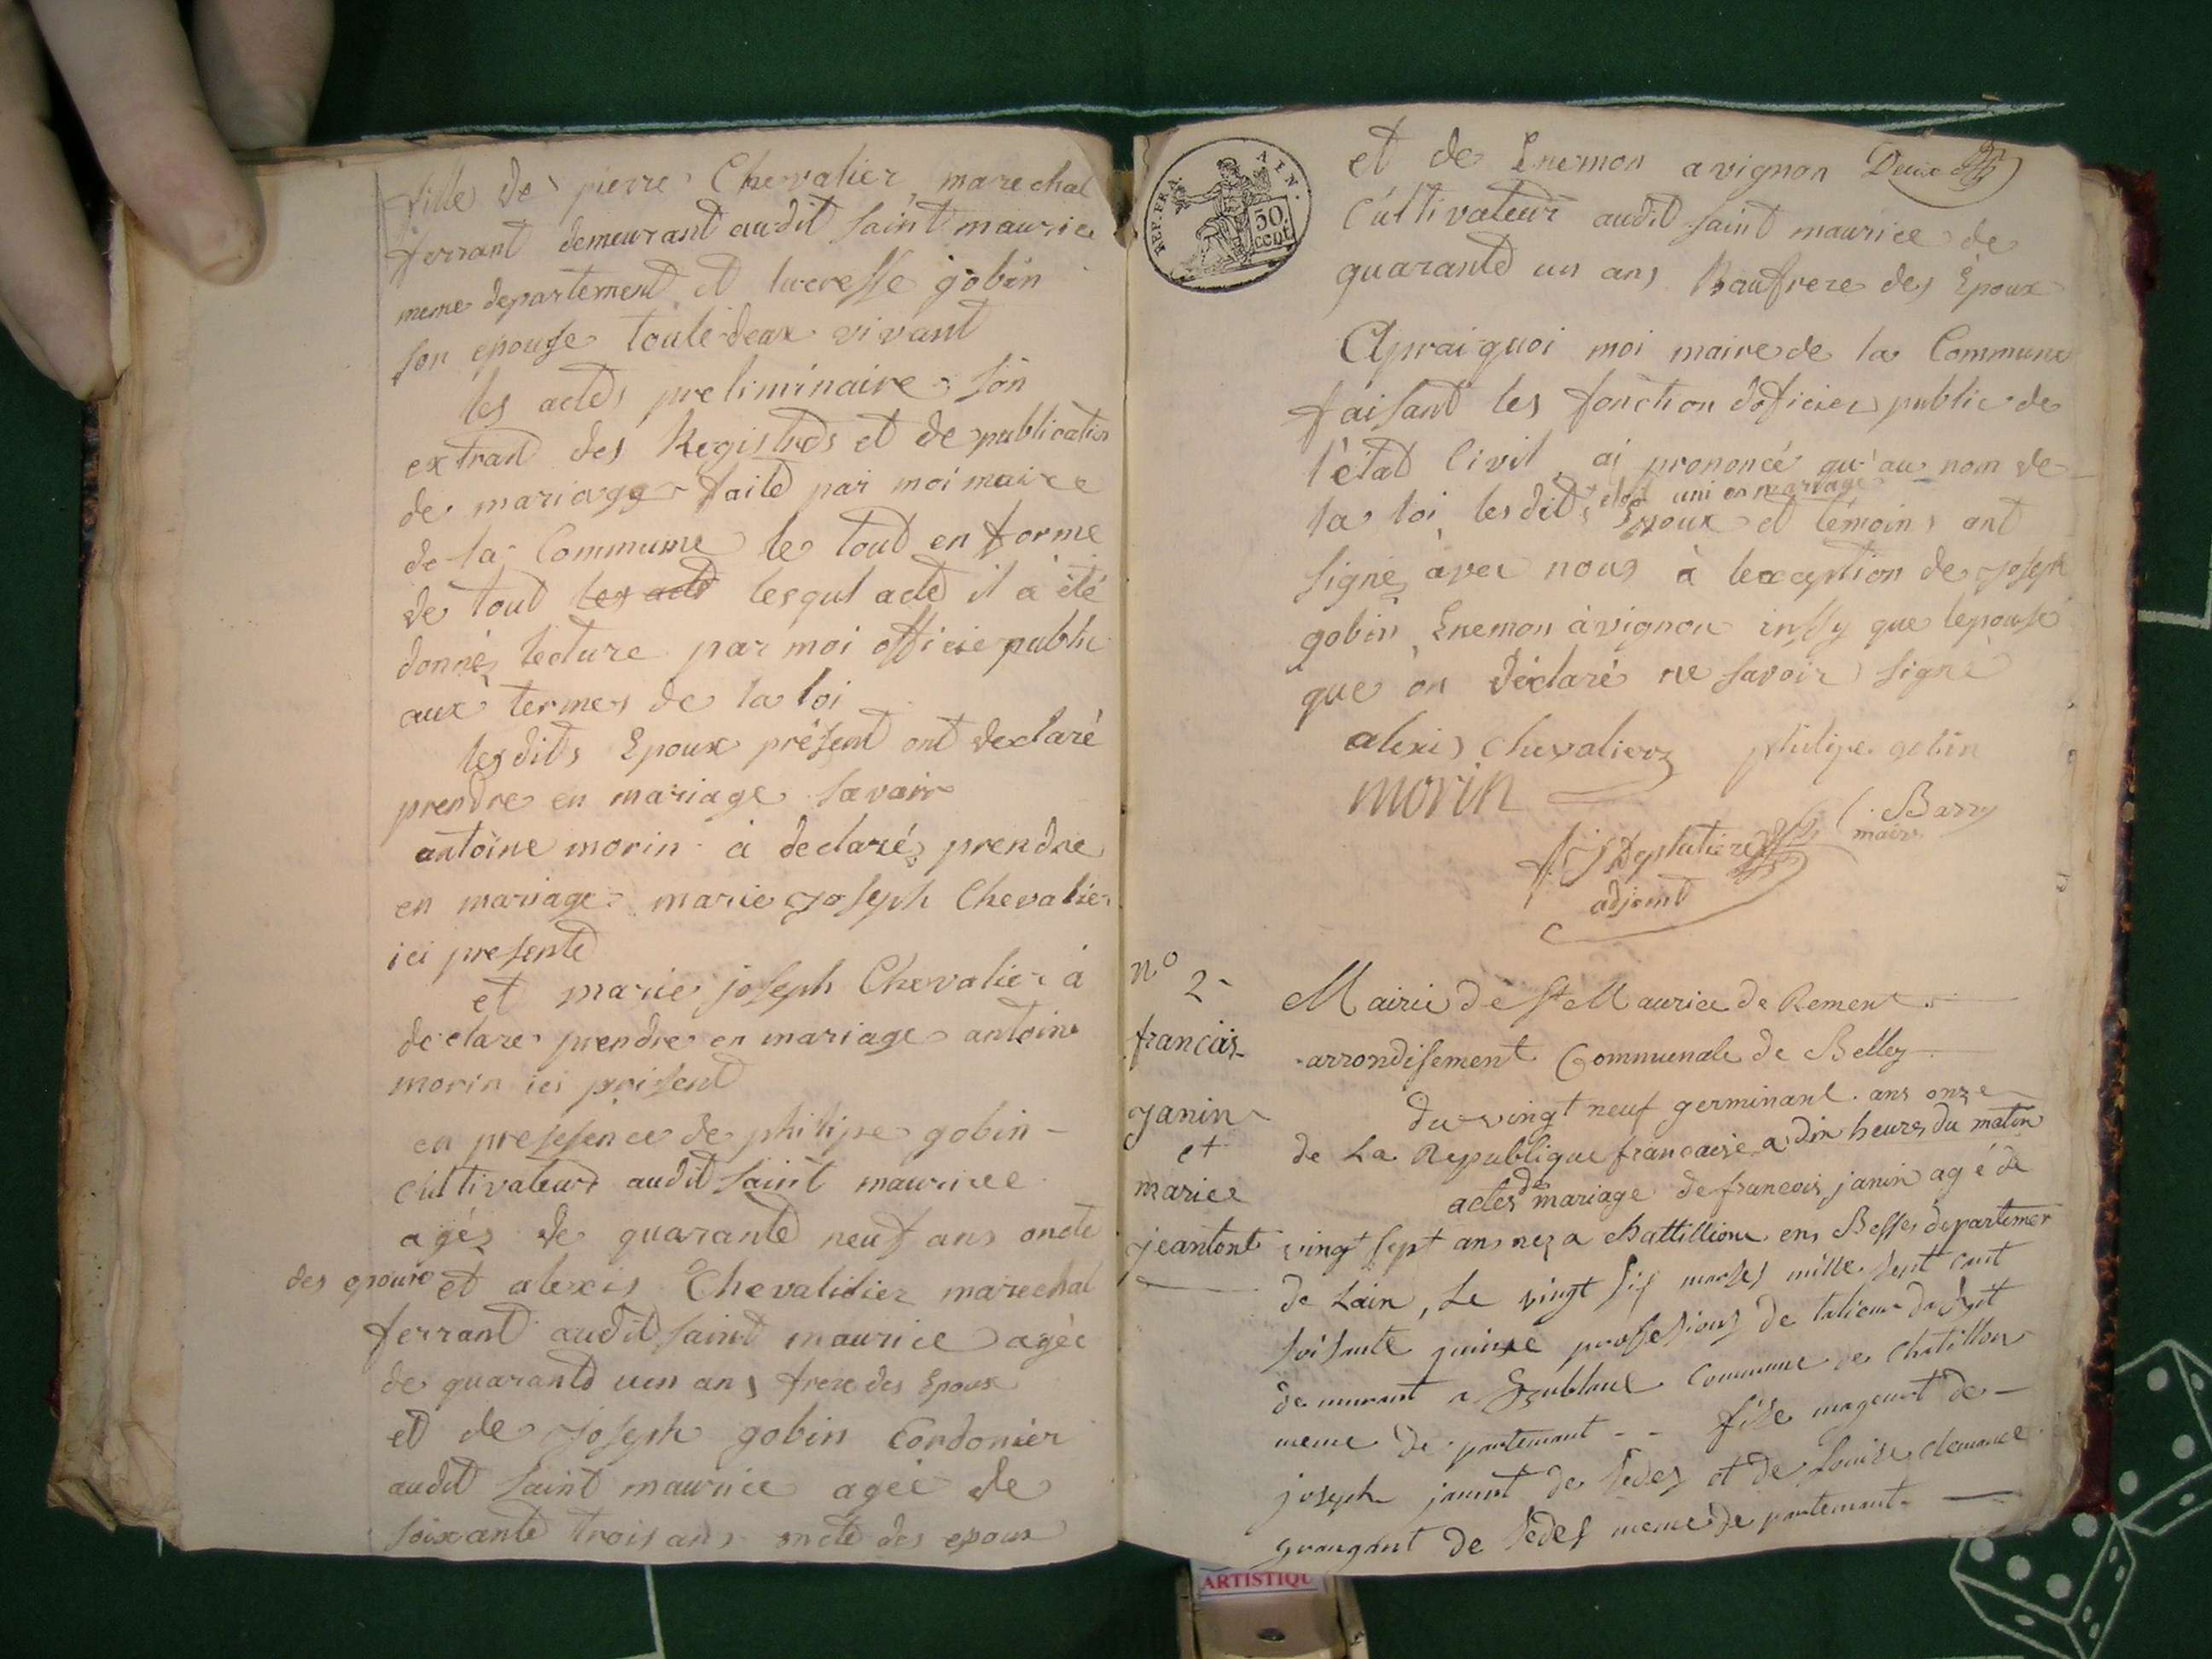 fille de pierre Chevalier marechal
ferrant demeurant audit saint maurice
meme departement et lucresse gobin
son epouse toute deux vivant
les actes preliminaire son
extrait des Registres et de publication
de mariage faite par moi maire
de la Commune le tout en forme
de tout les acte lesquel acte il a été
donnés lecture par moi officie public
aux termes de la loi
lesdits Epoux présent ont declaré
prendre en mariage savoir
antoine morin à declaré prendre
en mariage marie joseph Chevalier
ici presente
et marie joseph Chevalier à
declare prendre en mariage antoine
morin ici présent
en presesence de philipe gobin
cultivateur audit saint maurice
agés de quarante neuf ans oncle
des epoux et alexis Chevalidier marechal
ferrant audit saint maurice agée
de quarante uen ans frere des Epoux
et de joseph gobin Cordonier
audit saint maurice agée de
soixante trois ans oncle des epoux
REP. FRA. AIN.
50. cent
et de Enemon avignon Deux
Cultivateur audit saint maurice de
quarante un ans Baufrere des Epoux
Apraiquoi moi maire de la Commune
faisant les fonction doficier public de
l'état Civil, ai prononcé qu'au nom de
uni en mariage
la loi lesdits Epoux et témoins ont
signé avec nous à lexception de joseph
gobin, Enemon àvignon inssy que lepouse
que on déclaré ne savoir signé
alexis Chevalier philipe gobin
morin
C. Barry
maire
adjoint
n° 2
Mairie de St Maurice de Remens
francois
arrondisement Communale de Belley
du vingt neuf germinant ans onze
janin
de La Republique francaise a dix heures du matin
et
actes de mariage de francois janin agé de
marie
jeantont
vingt sept ans nez a Chattillione en Besse departemen
de Lain, Le vingt six marses mille sept cent
soisante quinse professions de talieur da bit
demeurant a commune de Chatillon
meme de partemant - - fise mageurt de
joseph janint de et de Louise clemance
de meme de partemant
ARTISTIQU